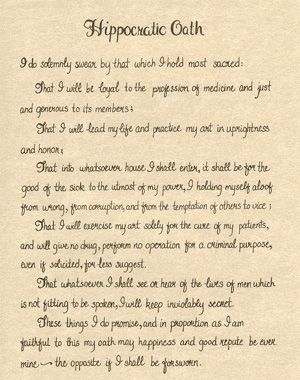 Hippocratic Oath
I do solemnly swear by that which I hold most sacred:
That I will be loyal to the profession of medicine and just
and generous to its members;
That I will lead my life and practice my art in uprightness
and honor;
That into whatsoever house I shall enter, it shall be for the
good of the sick to the utmost of my power, I holding myself aloof
from wrong, from corruption, and from the temptation of others to vice;
That I will exercise my art solely for the cure of my patients,
and will give no drug, perform no operation for a criminal purpose,
even if solicited, far less suggest.
That whatsoever I shall see or hear of the lives of men which
is not fitting to be spoken, I will keep inviolably secret.
These things I do promise, and in proportion as I am
faithful to this my oath may happiness and good repute be ever
mine — the opposite if I shall be forsworn.